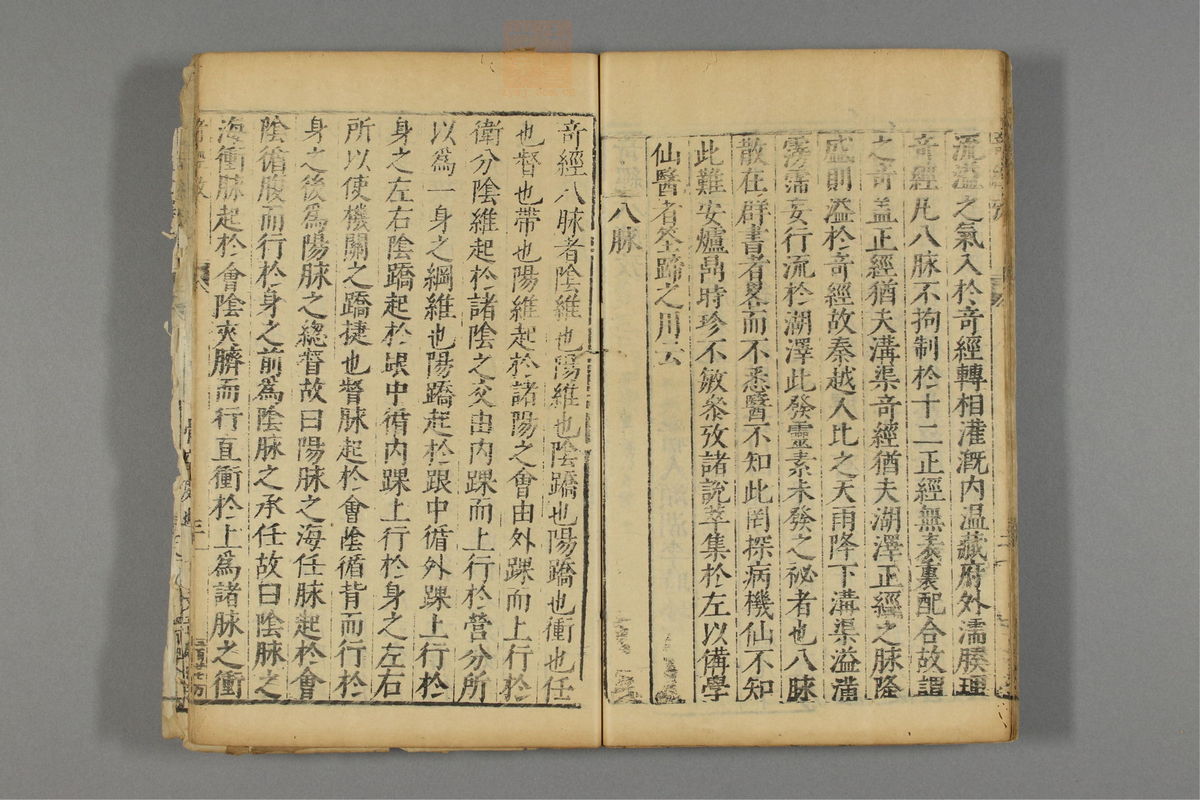 流溢之氣入於奇經轉相灌溉內温藏府外濡腠理
奇經凡八脉不拘制於十二正經無表裏配合故謂
之奇盖正經猶夫溝渠奇經猶夫湖澤正經之脉隆
盛則溢於奇經故秦越人比之天雨降下溝渠溢滿
霶霈妄行流於湖澤此發靈素未發之祕者也八脉
散在群書者畧而不悉醫不知此罔探病機仙不知
此難安爐鼎時珍不敏叅攷諸說萃集於左以備學
仙醫者筌蹄之用云
八脉
奇經八脉者陰維也陽維也陰蹻也陽蹻也衝也任
也督也帶也陽維起於諸陽之會由外踝而上行於
衛分陰維起於諸陰之交由內踝而上行於營分所
以爲一身之綱維也陽蹻起於跟中循外踝上行於
身之左右陰蹻起於跟中循內踝上行於身之左右
所以使機關之蹻捷也督脉起於會陰循背而行於
身之後爲陽脉之總督故曰陽脉之海任脉起於會
陰循腹而行於身之前爲陰脉之承任故曰陰脉之
海衝脉起於會陰夾臍而行直衝於上爲諸脉之衝
三